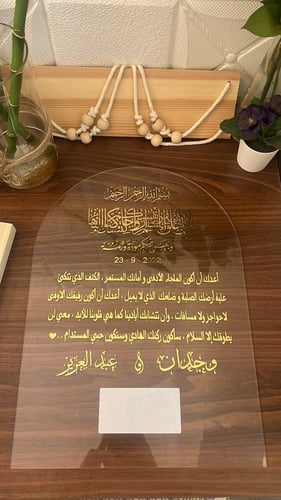 بسم الله الرحمن الرحيم
وجعل بينكم مودة ورحمة
23 - 9 - 2022
أعدك أن أكون الملجأ الأدفى وأمانك المستمر ، الكتف الذي تتكئ
علية أرضك الصلبة و ضلعك الذي لا يميل ، أعدك أن أكون رفيقك الأوفى
لا حواجز ولا مسافات ، وأن تتشابك أيادينا كما هي قلوبنا للأبد ، معي لن
يطوقك إلا السلام ، سأكون ركنك الهادي وستكون حبي المستدام ..♥
وجدان & عبدالعزيز